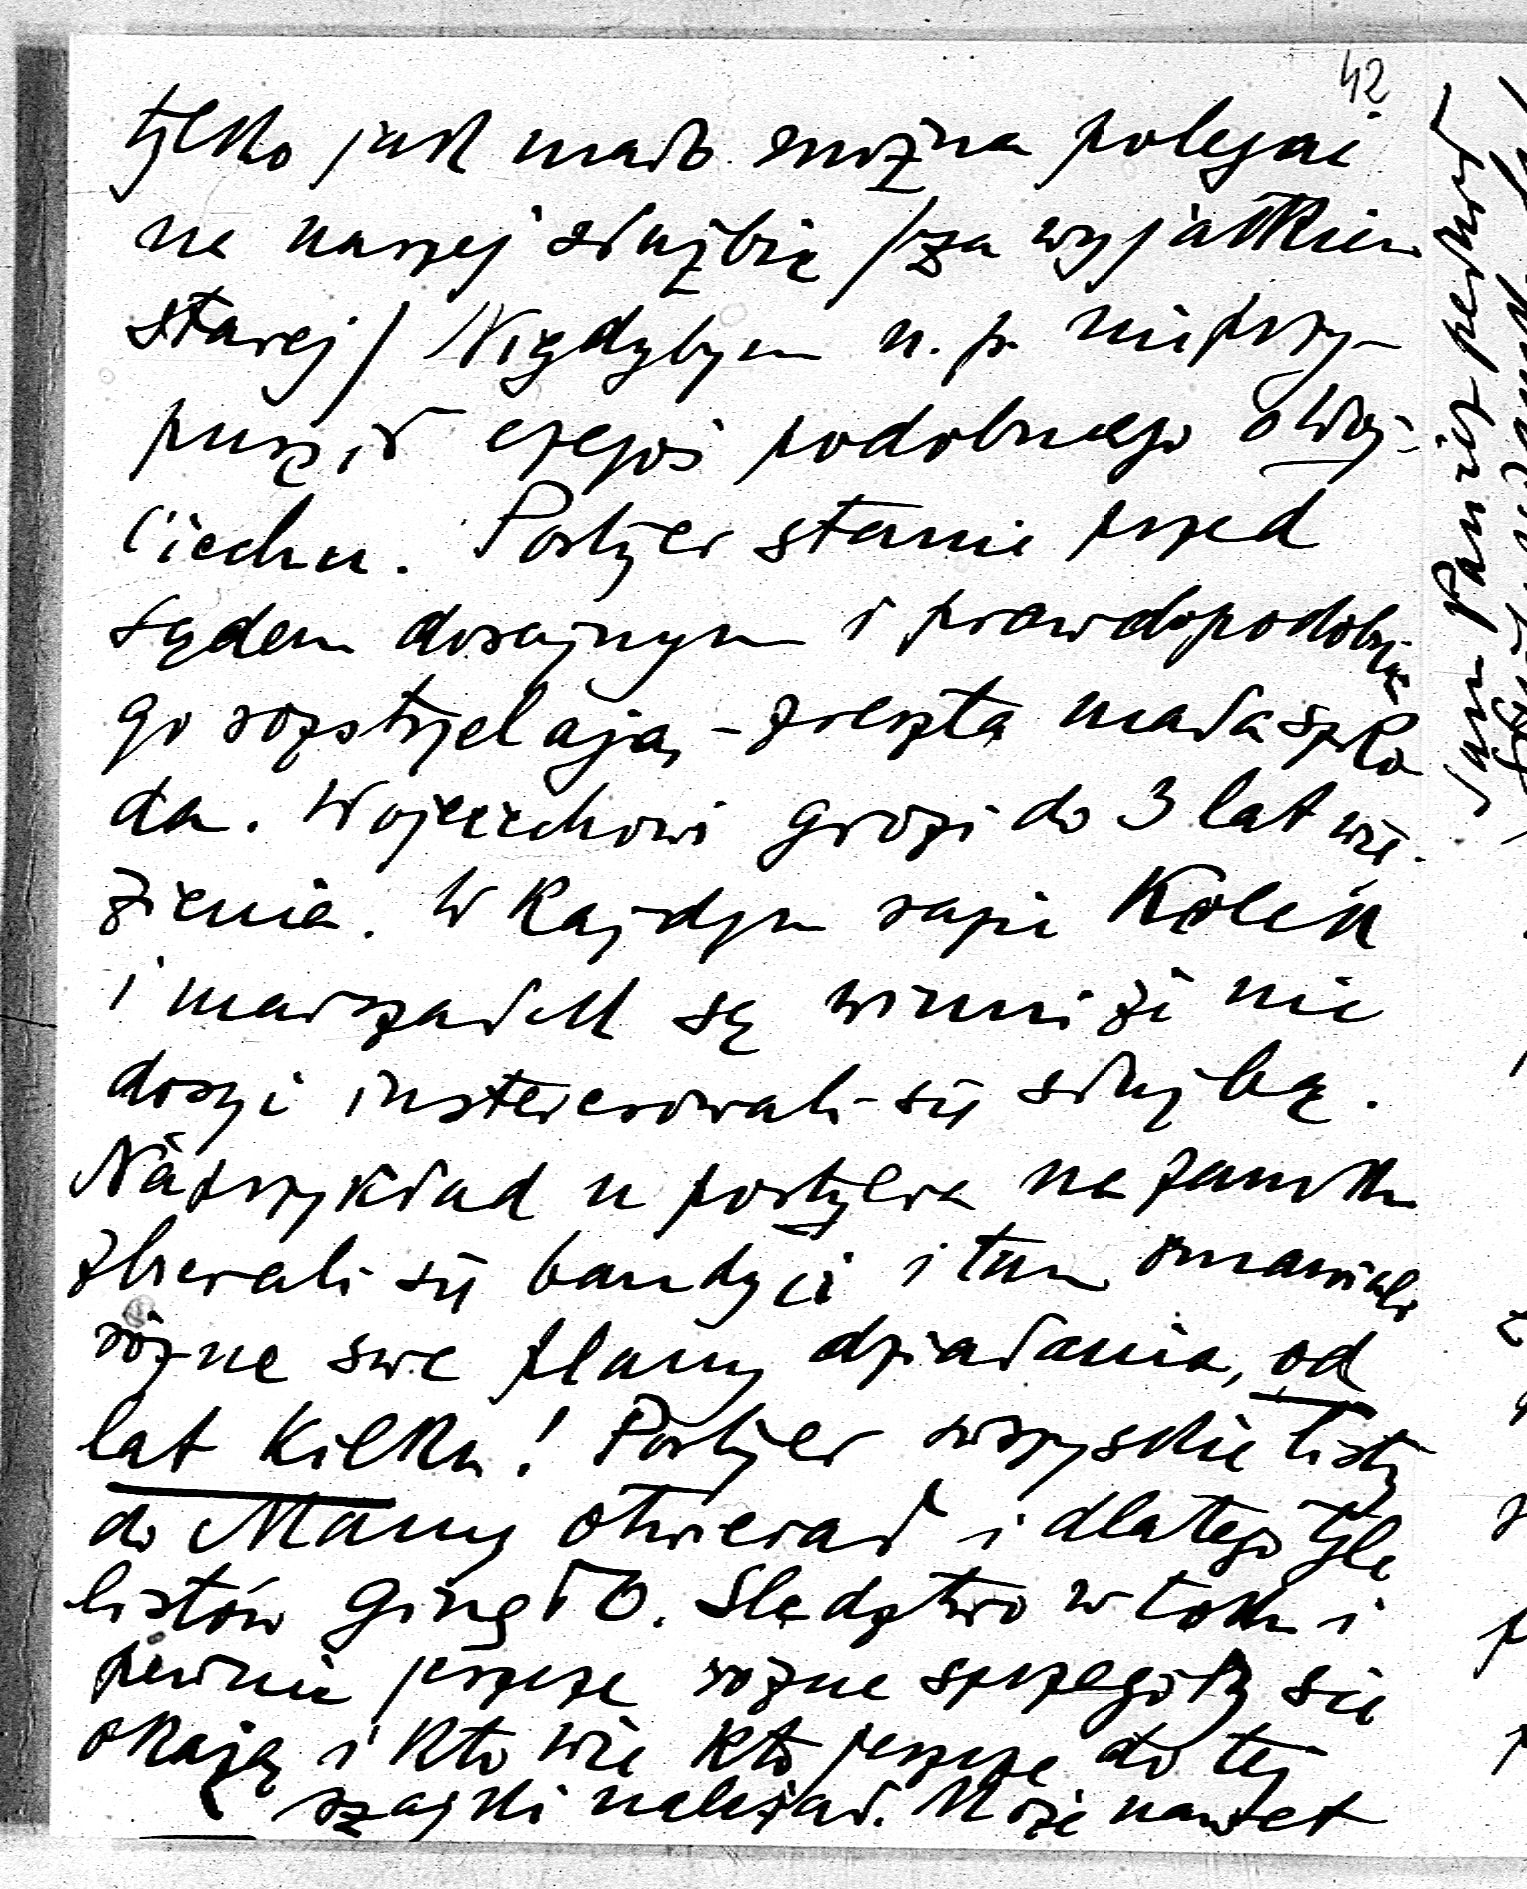 42
tylko jak mało można polegać
na naszej służbie /za wyjątkiem
starej/ Nigdybym n.p. nie przy-
puścił czegoś podobnego o Woj-
ciechu. Portjer stanie przed
sądem doraźnym i prawdopodobnie
go rozstrzelają, - zresztą mała szko
da. Wojciechowi grozi do 3 lat wię-
zienia. W każdym razie Kolek
i marszałek są winni że nie
dosyć interesowali się służbą.
Naprzykład u portjera na zamku
zbierali się bandyci i tam omawiali
różne swe plany działania, od
lat kilku! Portjer wszyskie listy
do Mamy otwierał i dlatego tyle
listów ginęło. Śledztwo w toku i
pewnie jeszcze różne szczegóły się
okażą i kto wie kto jeszcze do tej
szajki należał. Może nawet